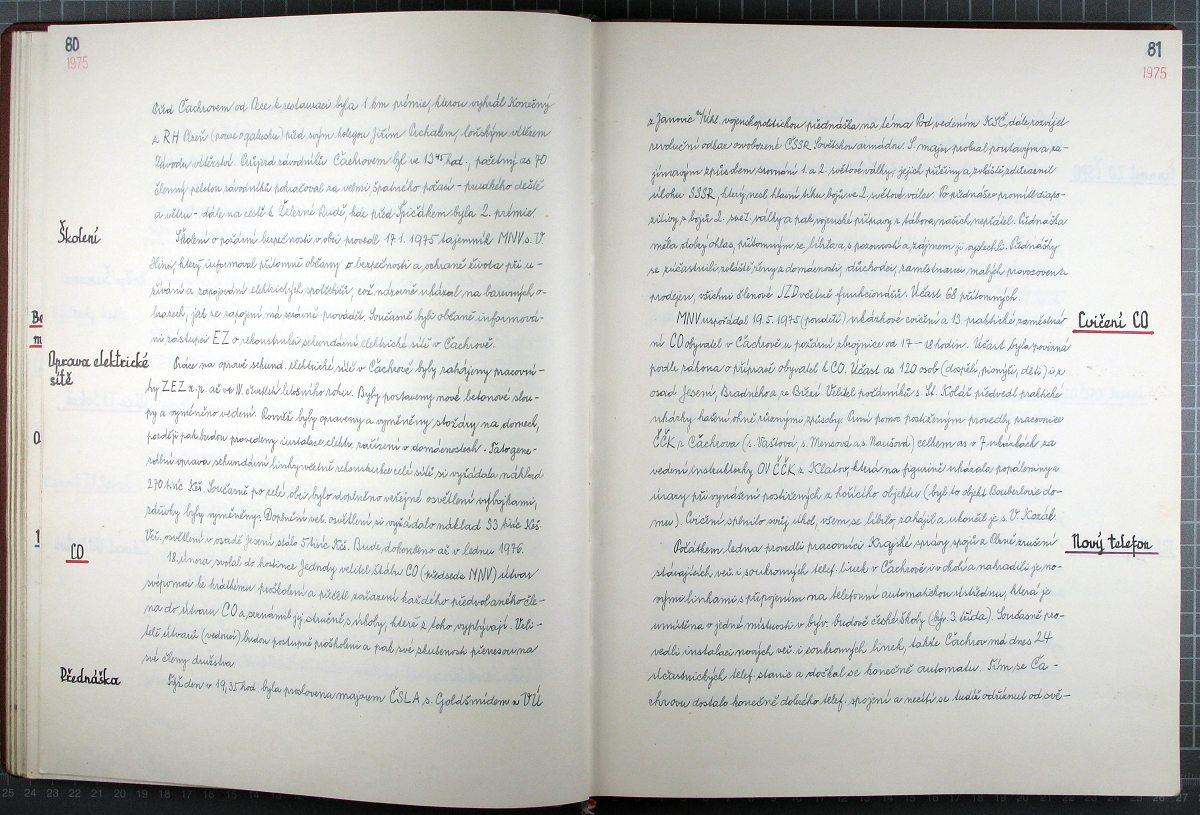 80
1975
Před Čachrovem od Pece k restauraci byla 1 km prémie, kterou vyhrál Konečný
z RH Plzeň (nouze o galusku) před svým kolegou Jiřím Prchalem, loňským vítězem
Závodu vítězství. Průjezd závodníků Čachrovem byl ve 13⁴⁵ hod., početný as 70
členný peloton závodníků pokračoval za velmi špatného počasí - prudkého deště
a větru - dále na cestě k Železné Rudě, kde před Špičákem byla 2. prémie.
Školení
Školení o požární bezpečnosti v obci provedl 17.1.1975 tajemník MNV s. V.
který informoval přítomné občany o bezpečnosti a ochraně života při u-
žívání a zapojování elektrických spotřebičů, což názorně ukázal na barevných o-
brazech, jak se zapojení má správně provádět. Současně byli občané informová-
ni zástupci EZ o rekonstrukci sekundární elektrické sítě v Čachrově.
Oprava elektrické
sítě
Práce na opravě sekund. elektrické sítě v Čachrově byly zahájeny pracovní-
ky ZEZ n.p. až ve IV. čtvrtletí letošního roku. Byly postaveny nové betonové slou-
py a vyměněno vedení. Rovněž byly opraveny a vyměněny stožáry na domech,
později pak budou provedeny instalace elektr. zařízení v domácnostech. Tato gene-
rální oprava sekundární linky včetně rekonstrukce celé sítě si vyžádala náklad
270 tisíc Kčs. Současně po celé obci bylo doplněno veřejné osvětlení výbojkami,
žárovky byly vyměněny. Doplnění veř. osvětlení si vyžádalo náklad 93 tisíc Kčs.
Veř. osvětlení v osadě Jesení stálo 5 tisíc Kčs. Bude dokončeno až v lednu 1976.
CO
18. února svolal do hostince Jednoty velitel Štábu CO (předseda MNV) útvar
svépomoci ke krátkému proškolení a přečetl zařazení každého předvolaného čle-
na do útvaru CO a seznámil jej stručně s úkoly, které z toho vyplývají. Veli-
telé útvarů (vedoucí) budou postupně proškoleni a pak své zkušenosti přenesou na
své členy družstva.
Přednáška
Týž den v 19,35 hod. byla proslovena majorem ČSLA s. Goldšmídem z VÚ
81
1975
z Janovic n/Úhl. vojenskopolitickou přednáška na téma Pod vedením KSČ, dále rozvíjet
revoluční odkaz osvobození ČSSR Sovětskou armádou. S. major probral poutavým a za-
jímavým způsobem srovnání 1. a 2. světové války, jejich příčiny a zvláště zdůraznil
úlohu SSSR, který nesl hlavní tíhu bojů ve 2. světové válce. Po přednášce promítl diapo-
zitivy z bojů 2. svět. války a pak vojenské přípravy z tábora našich nepřátel. Přednáška
měla dobrý ohlas, přítomným se líbila a s pozorností a zájmem ji vyslechli. Přednášky
se zúčastnili zvláště ženy z domácnosti, důchodci, zaměstnanci malých provozoven a
prodejen, všichni členové JZD včetně funkcionářů. Účast 68 přítomných.
Cvičení CO
MNV uspořádal 19.5.1975 (pondělí) ukázkové cvičení a 19. praktické zaměstná-
ní CO obyvatel v Čachrově u požární zbrojnice od 17-18 hodin. Účast byla povinná
podle zákona o přípravě obyvatel k CO. Účast as 120 osob (dospělí, pionýři, děti) i z
osad Jesení, Bradného a z Březí. Velitel požárníků s. St. Kolář předvedl praktické
ukázky hašení ohně různými způsoby. První pomoc postiženým provedly pracovnice
ČČK z Čachrova (s. Vaštová, s. Mensová a s. Maušová) celkem as v 7 ukázkách za
vedení instruktorky OV ČČK z Klatov, která na figurině ukázala popáleniny a
úrazy při vynášení postižených z hořícího objektu (byl to objekt Bouberlovic do-
mu). Cvičení splnilo svůj úkol, všem se líbilo, zahájil a ukončil je s. V. Kozák.
Nový telefon
Počátkem ledna provedli pracovníci Krajské správy spojů z Plzně zrušení
stávajících veř. i soukromých telef. linek v Čachrově i v okolí a nahradili je no-
vými linkami s připojením na telefonní automatickou ústřednu, která je
umístěna v jedné místnosti v býv. budově české školy (býv. 3. třída). Současně pro-
vedli instalaci nových veř. i soukromých linek, takže Čachrov má dnes 24
účastnických telef. stanic a dočkal se konečně automatu. Tím se Ča-
chrovu dostalo konečně dobrého telef. spojení a necítí se tudíž odříznut od svě-